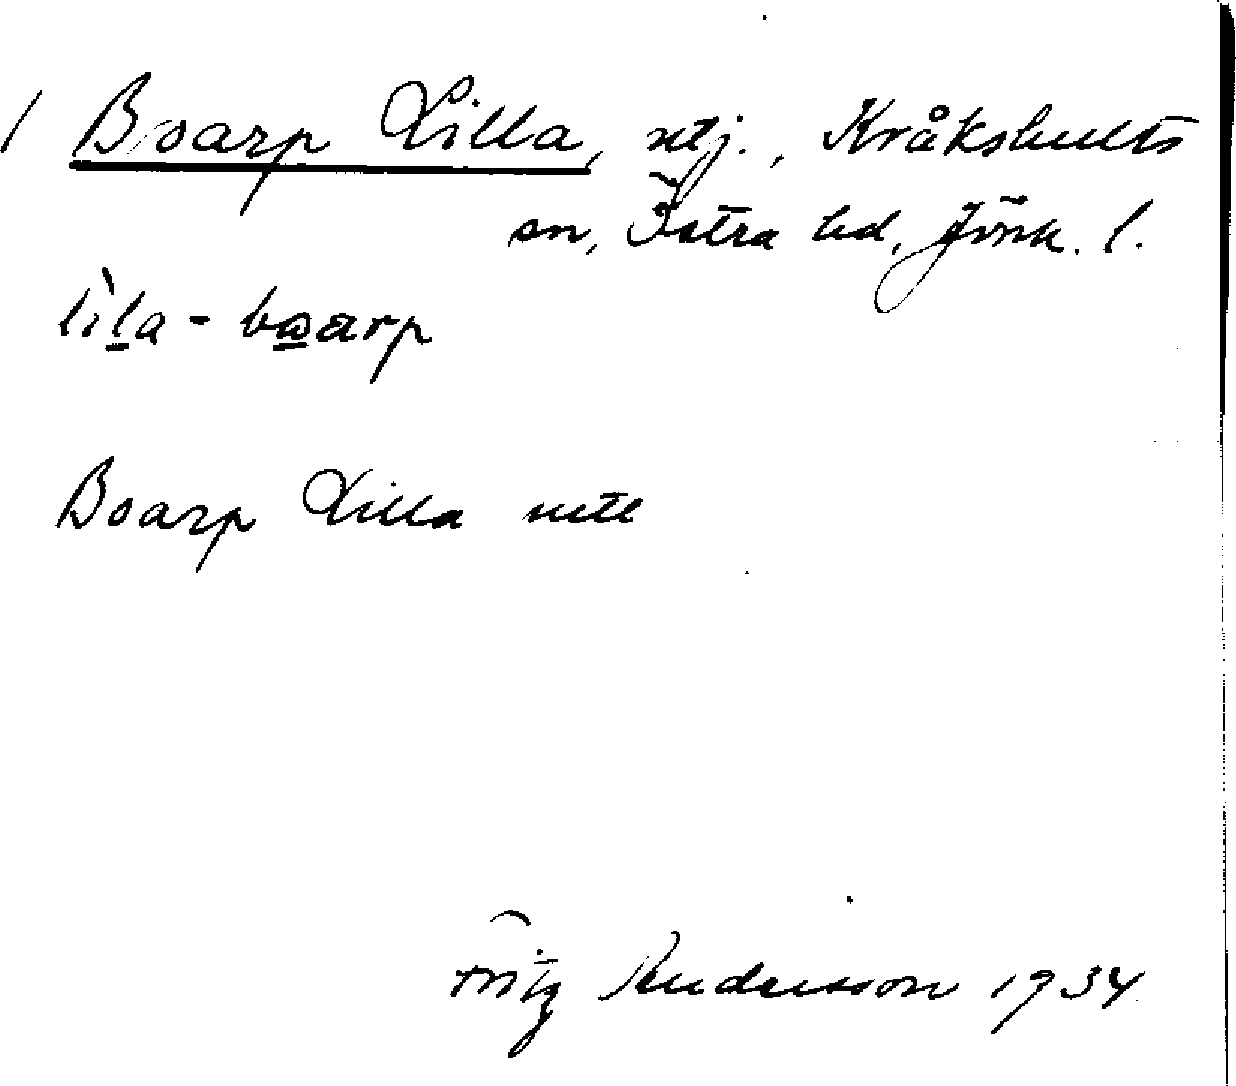 / Boarp Lilla, utj., Kråkshults
sn, Östra hd, Jönk. l.
lìla - boarp
Boarp Lilla utll
Fritz Andersson 1934